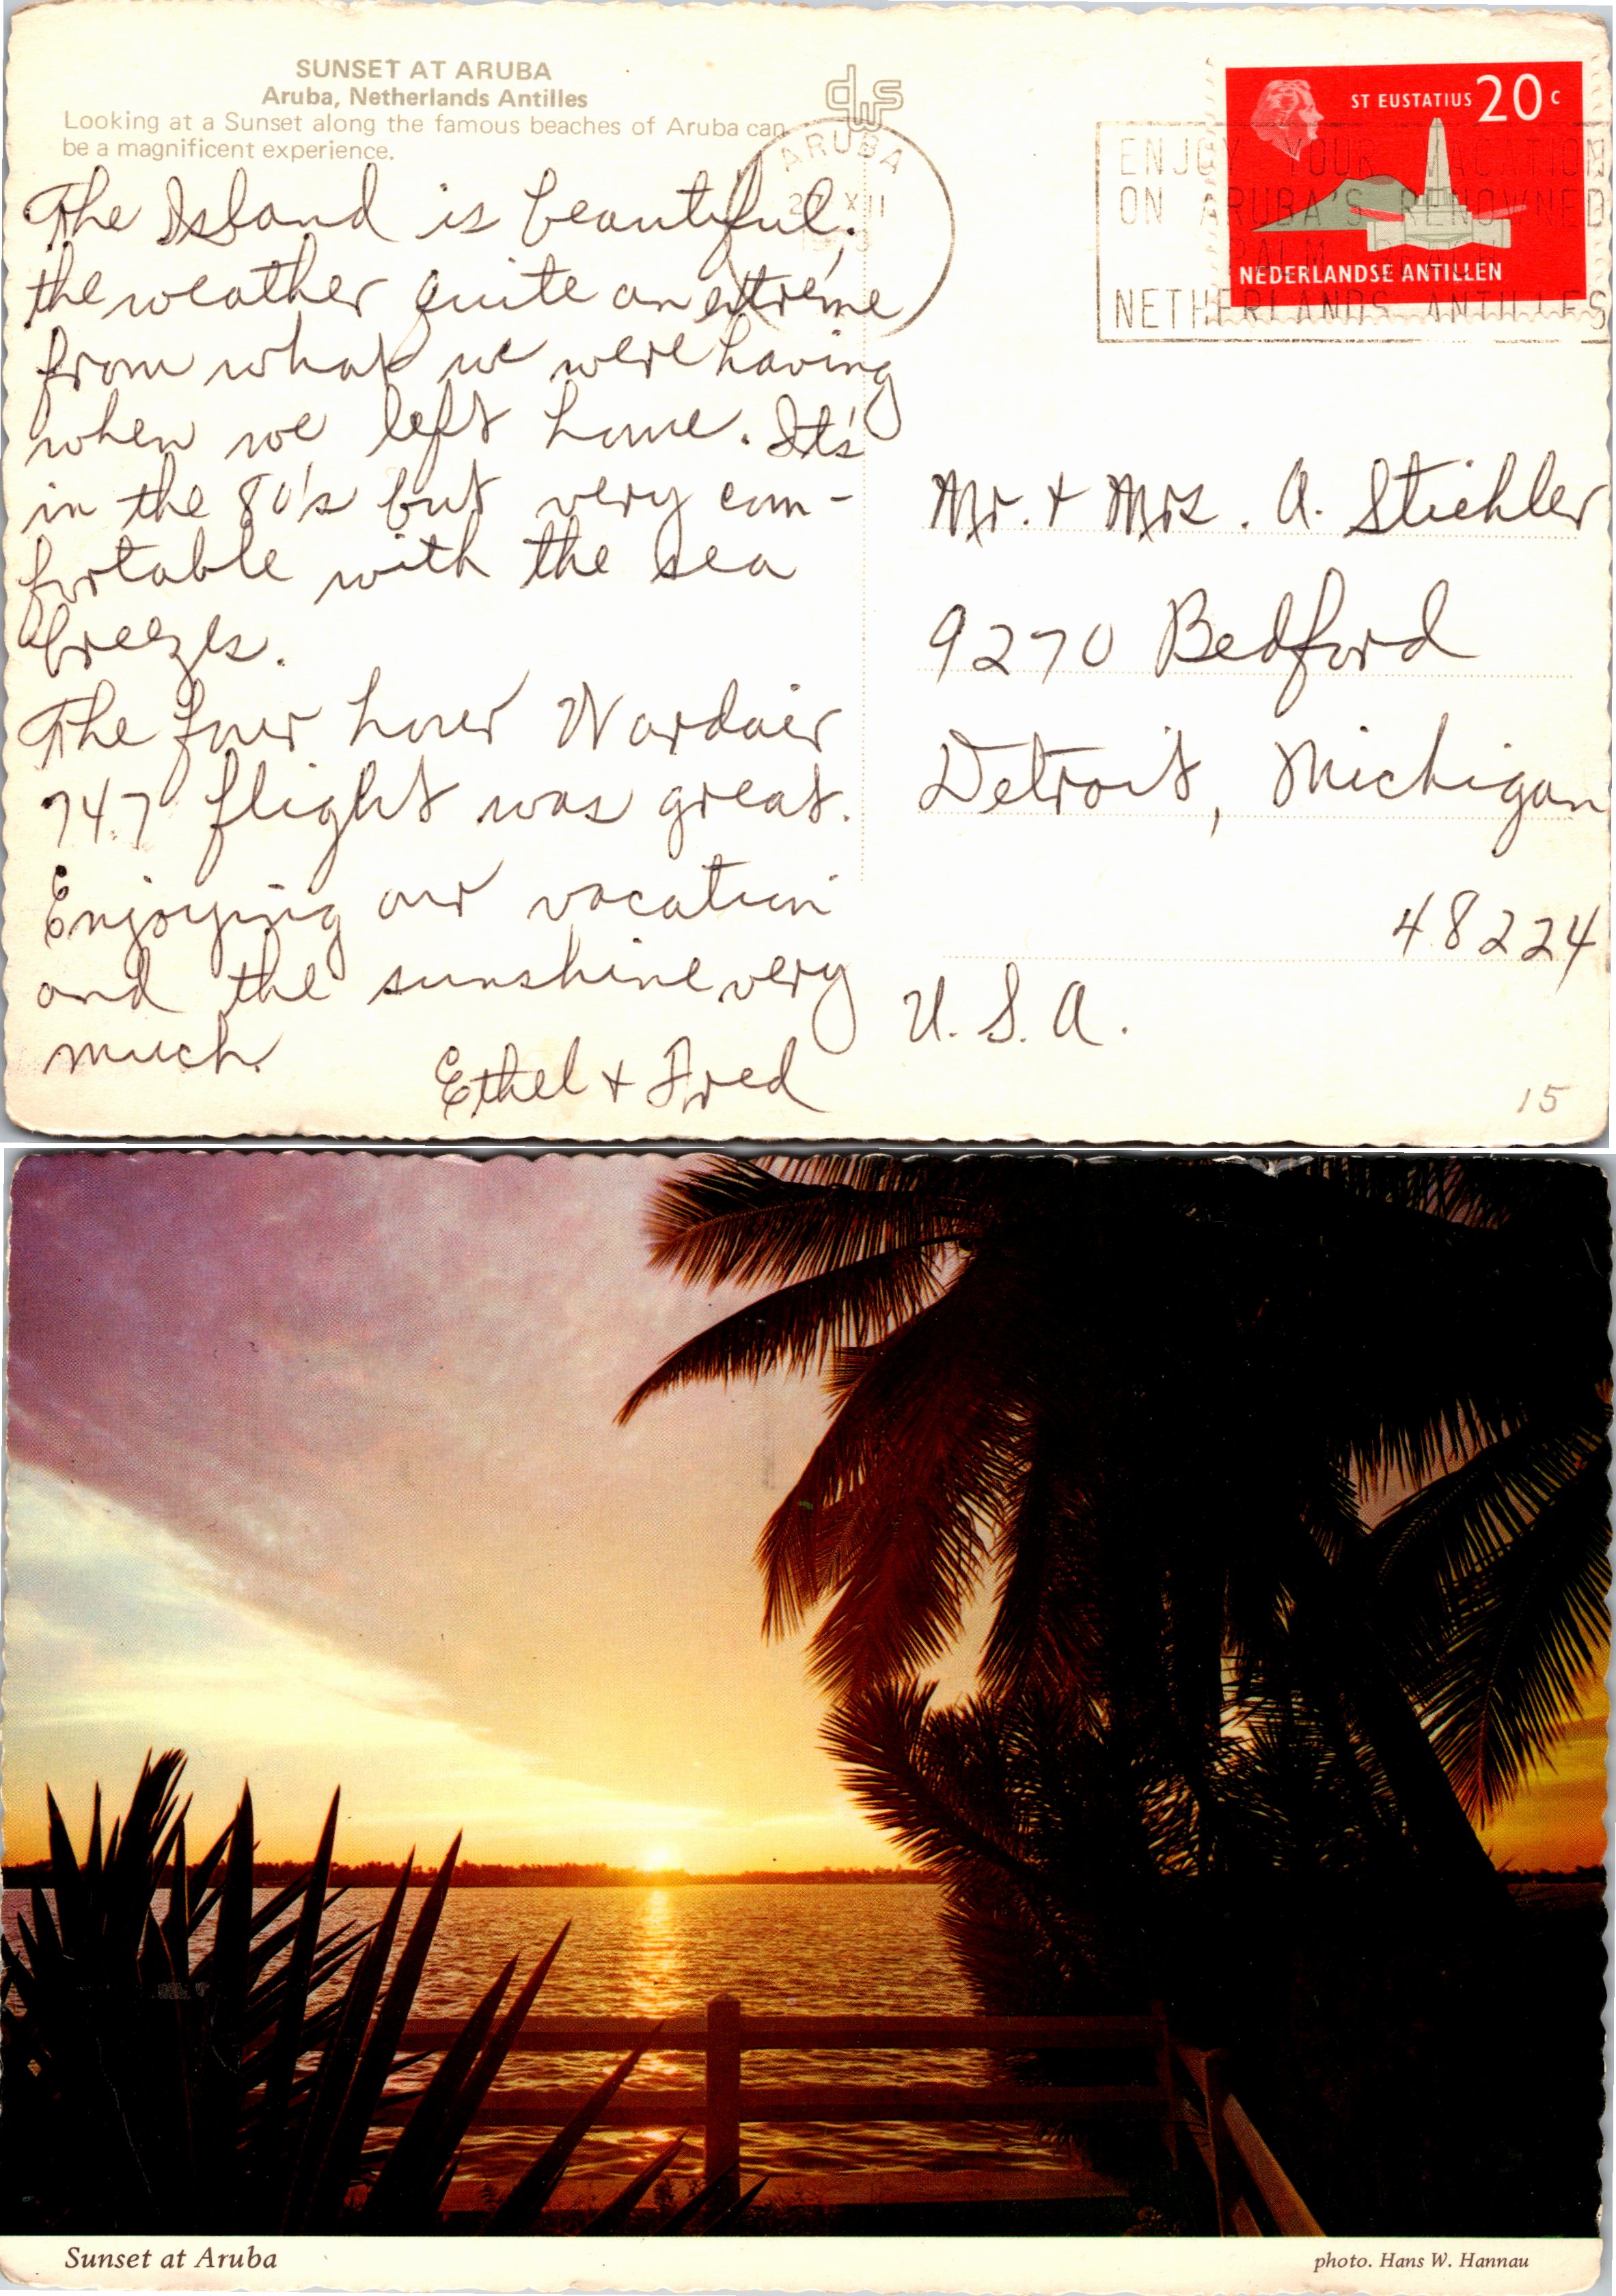 SUNSET AT ARUBA
Aruba, Netherlands Antilles
Looking at a Sunset along the famous beaches of Aruba can
be a magnificent experience.
dws
ARUBA
XII
ST EUSTATIUS 20 c
NEDERLANDSE ANTILLEN
ENJOY YOUR VACATION
ON ARUBA'S RENOWNED
PALM BEACH
NETHERLANDS ANTILLES
The Island is beautiful;
the weather quite an extreme
from what we were having
when we left home. It's
in the 80's but very com-
fortable with the sea
breezes.
The four hour Wardair
747 flight was great.
Enjoying our vacation
and the sunshine very
much.
Ethel + Fred
Mr. + Mrs. A. Stichler
9270 Bedford
Detroit, Michigan
48224
U.S.A.
15
Sunset at Aruba
photo. Hans W. Hannau